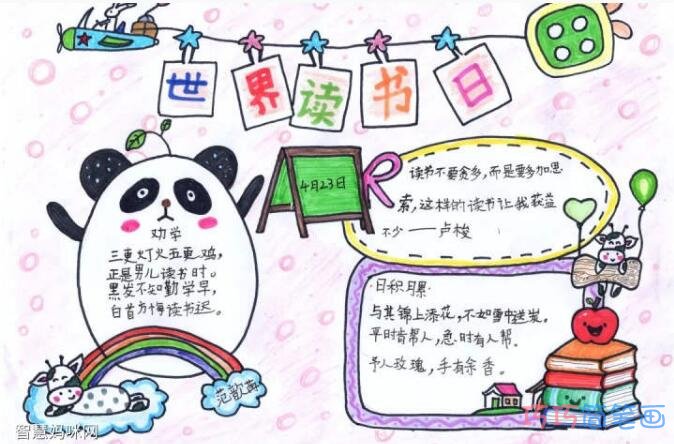 世界读书日
4月23日
劝学
三更灯火五更鸡,
正是男儿读书时。
黑发不知勤学早,
白首方悔读书迟。
读书不要贪多,而是要多加思
索,这样的读书让我获益
不少——卢梭
·日积月累·
与其锦上添花,不如雪中送炭。
平时肯帮人,急时有人帮。
予人玫瑰,手有余香。
智慧妈咪网
巧巧简笔画